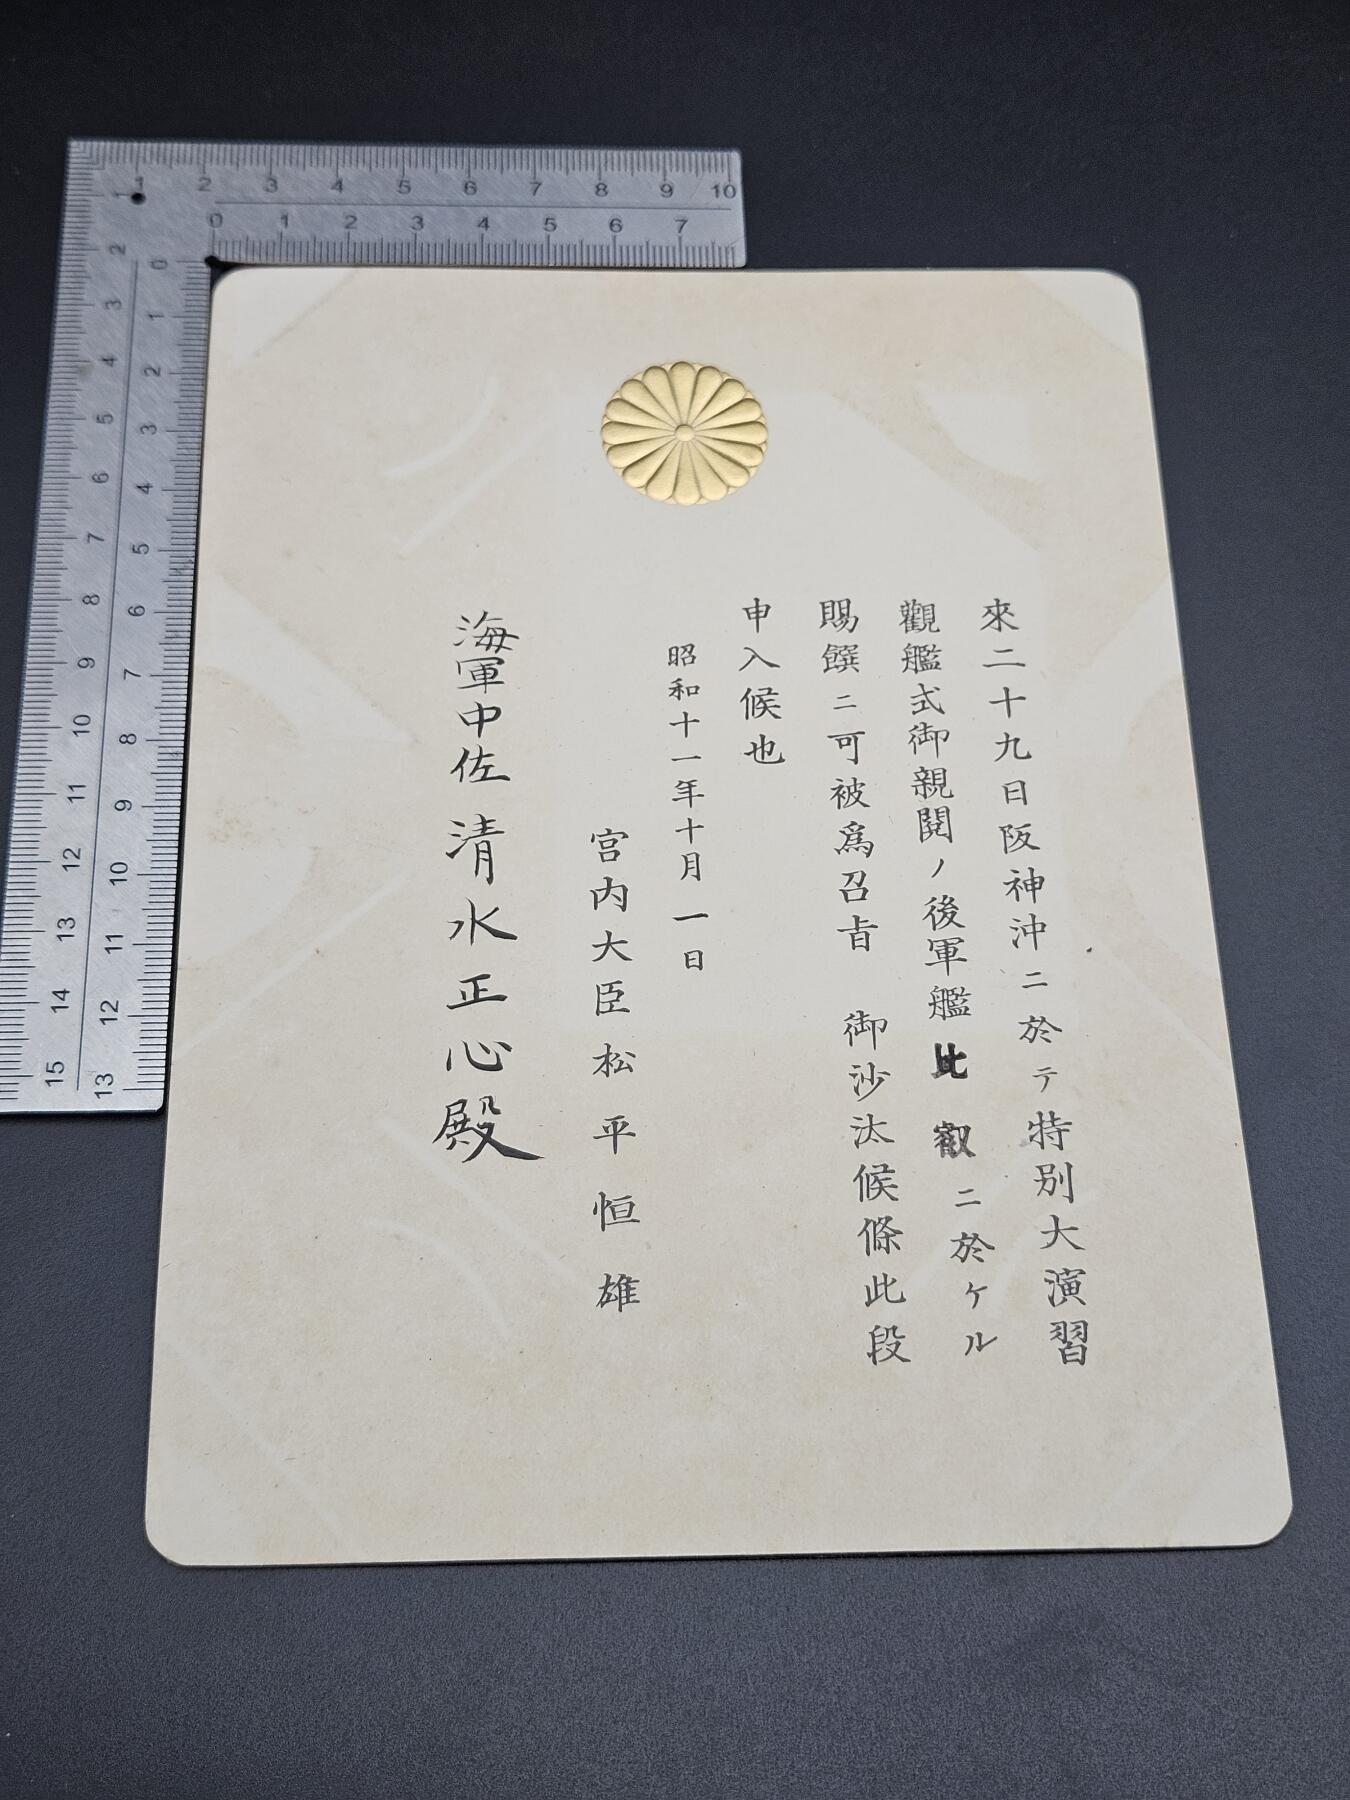 來二十九日阪神沖ニ於テ特別大演習
觀艦式御親閱ノ後軍艦比叡ニ於ケル
賜饌ニ可被爲召旨 御沙汰候條此段
申入候也
昭和十一年十月一日
宮内大臣松平恒雄
海軍中佐清水正心殿
1 2 3 4 5 6 7 8 9 10
0 1 2 3 4 5 6 7
1 2 3 4 5 6 7 8 9 10 11 12 13 14 15
0 1 2 3 4 5 6 7 8 9 10 11 12 13